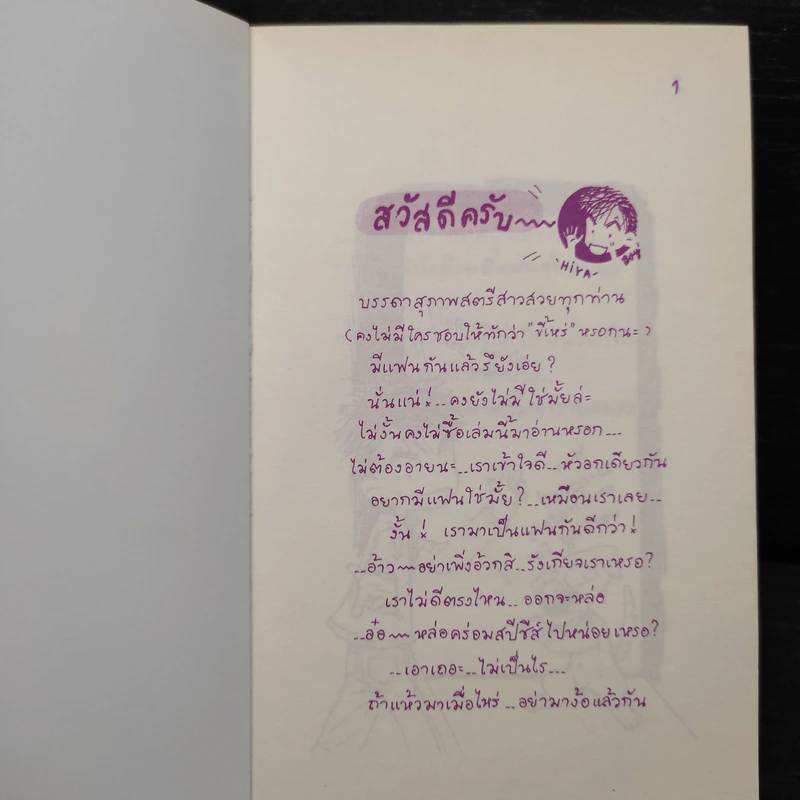 1
สวัสดีครับ~~~
HIYA~
บรรดาสุภาพสตรีสาวสวยทุกท่าน
(คงไม่มีใครชอบให้ทักว่า "ขี้เหร่" หรอกนะ)
มีแฟนกันแล้วรึยังเอ่ย?
นั่นแน่!...คงยังไม่มีใช่มั้ยล่ะ
ไม่งั้นคงไม่ซื้อเล่มนี้มาอ่านหรอก...
ไม่ต้องอายนะ...เราเข้าใจดี...หัวอกเดียวกัน
อยากมีแฟนใช่มั้ย?...เหมือนเราเลย...
งั้น! เรามาเป็นแฟนกันดีกว่า!
...อ้าว~~อย่าเพิ่งอ้วกสิ...รังเกียจเราเหรอ?
เราไม่ดีตรงไหน...ออกจะหล่อ
...อ๋อ~~~หล่อคร่อมสปีชีส์ไปหน่อยเหรอ?
...เอาเถอะ...ไม่เป็นไร...
ถ้าแห้วมาเมื่อไหร่...อย่ามาง้อแล้วกัน